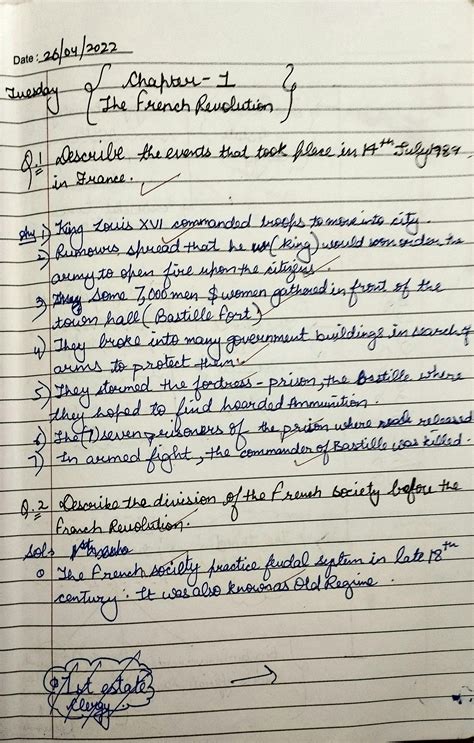 Date: 26/04/2022
Tuesday
Chapter - 1
The French Revolution
Q.1 Describe the events that took place in 14th July 1989
in France.
Ans 1) King Louis XVI commanded troops to move into city.
2) Rumours spread that he (King) would soon order the
army to open fire upon the citizens.
3) Some 7,000 men & women gathered in front of the
town hall (Bastille Fort)
4) They broke into many government buildings in search of
arms to protect them.
5) They stormed the fortress-prison, the Bastille where
they hoped to find hoarded Ammunition.
6) The (7) seven prisoners of the prison where released
7) In armed fight, the commander of Bastille was killed.
Q.2 Describe the division of the French society before the
French Revolution.
Sol:
The French society practice feudal system in late 18th
century. It was also known as Old Regime.
1st estate
Clergy